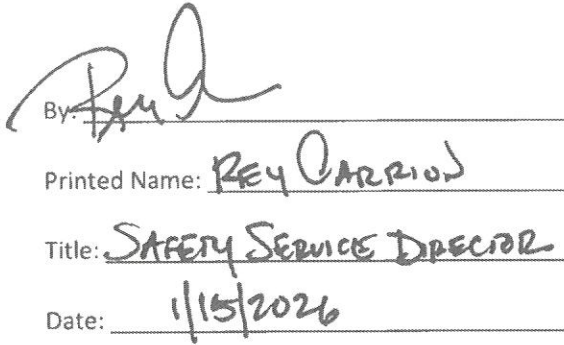 By: Rey C
Printed Name: REY CARRION
Title: SAFETY SERVICE DIRECTOR
Date: 1/15/2026